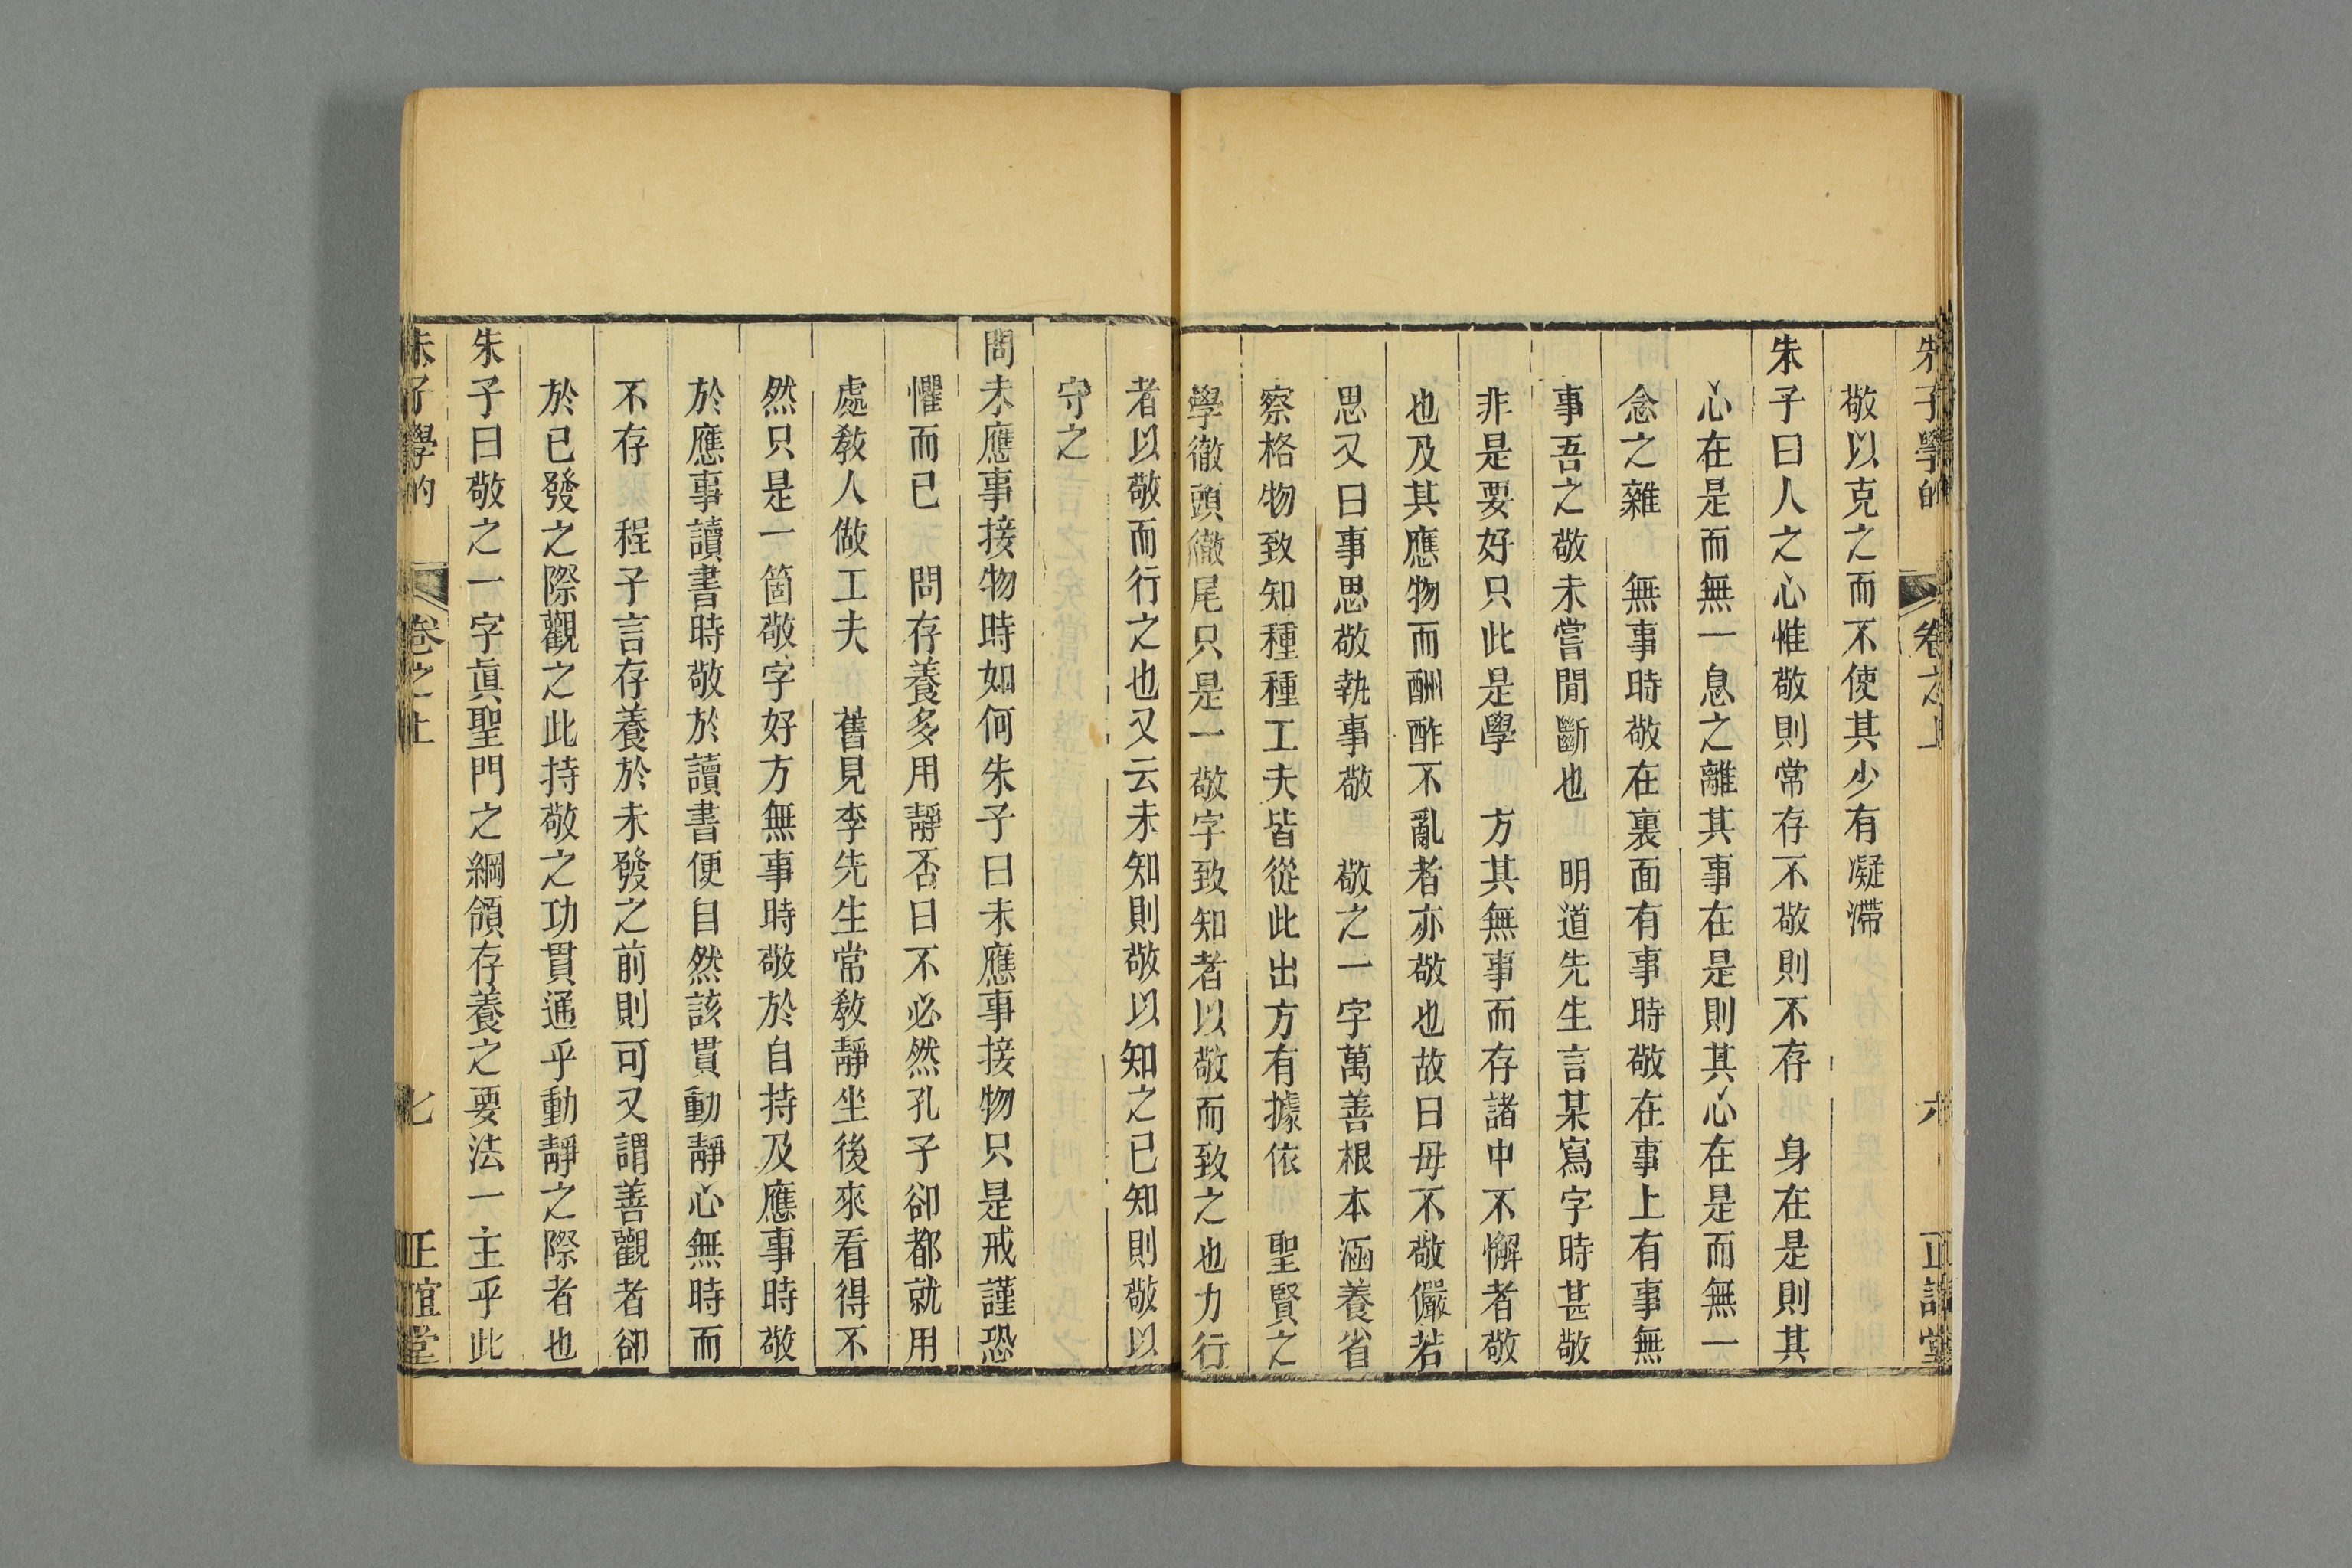 朱子學的 卷之上 六 正誼堂
敬以克之而不使其少有凝滯
朱子曰人之心惟敬則常存不敬則不存 身在是則其
心在是而無一息之離其事在是則其心在是而無一
念之雜 無事時敬在裏面有事時敬在事上有事無
事吾之敬未嘗間斷也 明道先生言某寫字時甚敬
非是要好只此是學 方其無事而存諸中不懈者敬
也及其應物而酬酢不亂者亦敬也故曰毋不敬儼若
思又曰事思敬執事敬 敬之一字萬善根本涵養省
察格物致知種種工夫皆從此出方有據依 聖賢之
學徹頭徹尾只是一敬字致知者以敬而致之也力行
者以敬而行之也又云未知則敬以知之已知則敬以
守之
問未應事接物時如何朱子曰未應事接物只是戒謹恐
懼而已 問存養多用靜否曰不必然孔子卻都就用
處教人做工夫 舊見李先生常教靜坐後來看得不
然只是一箇敬字好方無事時敬於自持及應事時敬
於應事讀書時敬於讀書便自然該貫動靜心無時而
不存 程子言存養於未發之前則可又謂善觀者卻
於已發之際觀之此持敬之功貫通乎動靜之際者也
朱子曰敬之一字眞聖門之綱領存養之要法一主乎此
朱子學的 卷之上 七 正誼堂